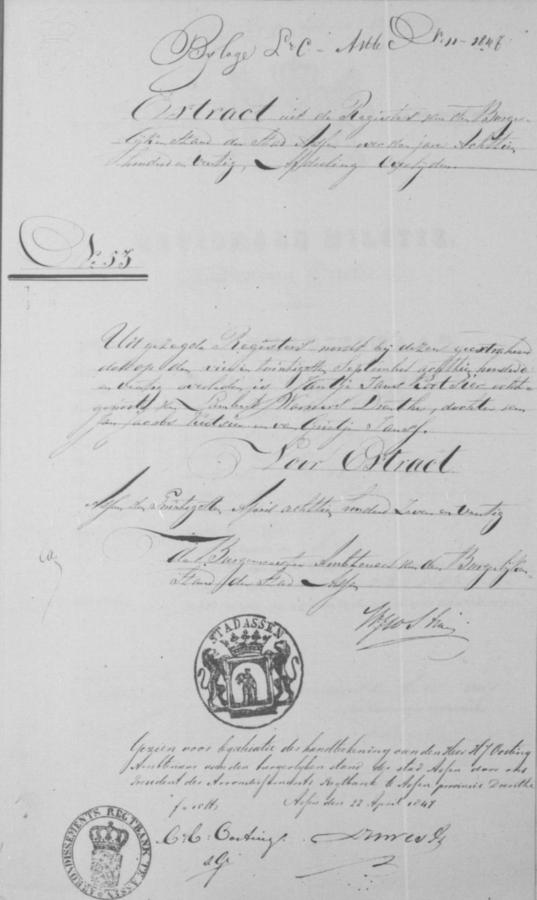 Bylage Lr C - No 11 - 1847
Extract uit de Registers van den Burger-
lijken Stand der Stad Assen over den jare Achttien
honderd en veertig, Afdeeling Overlijden.
No 53
Uit gezegde Registers wordt bij dezen geextraheerd
dat op den vier en twintigsten September achttien honderd
en veertig overleden is Jantje Jans echt
genoote van Lambert Warmers Drenthe, dochter van
Jan Jacobs en van Geertje Jans.
Voor Extract
Assen den Twintigsten April achttien honderd Zeven en veertig
de Burgemeester Ambtenaar van den Burgerlijken
Stand der Stad Assen
STAD ASSEN
Gezien voor legalisatie der handteekening van den Heer H J Oosting
Ambtenaar van den burgerlijken stand der stad Assen door ons
President der Arrondissements Regtbank te Assen provincie Drenthe
Assen den 22 April 1847
Oosting
ARRONDISSEMENTS REGTBANK TE ASSEN